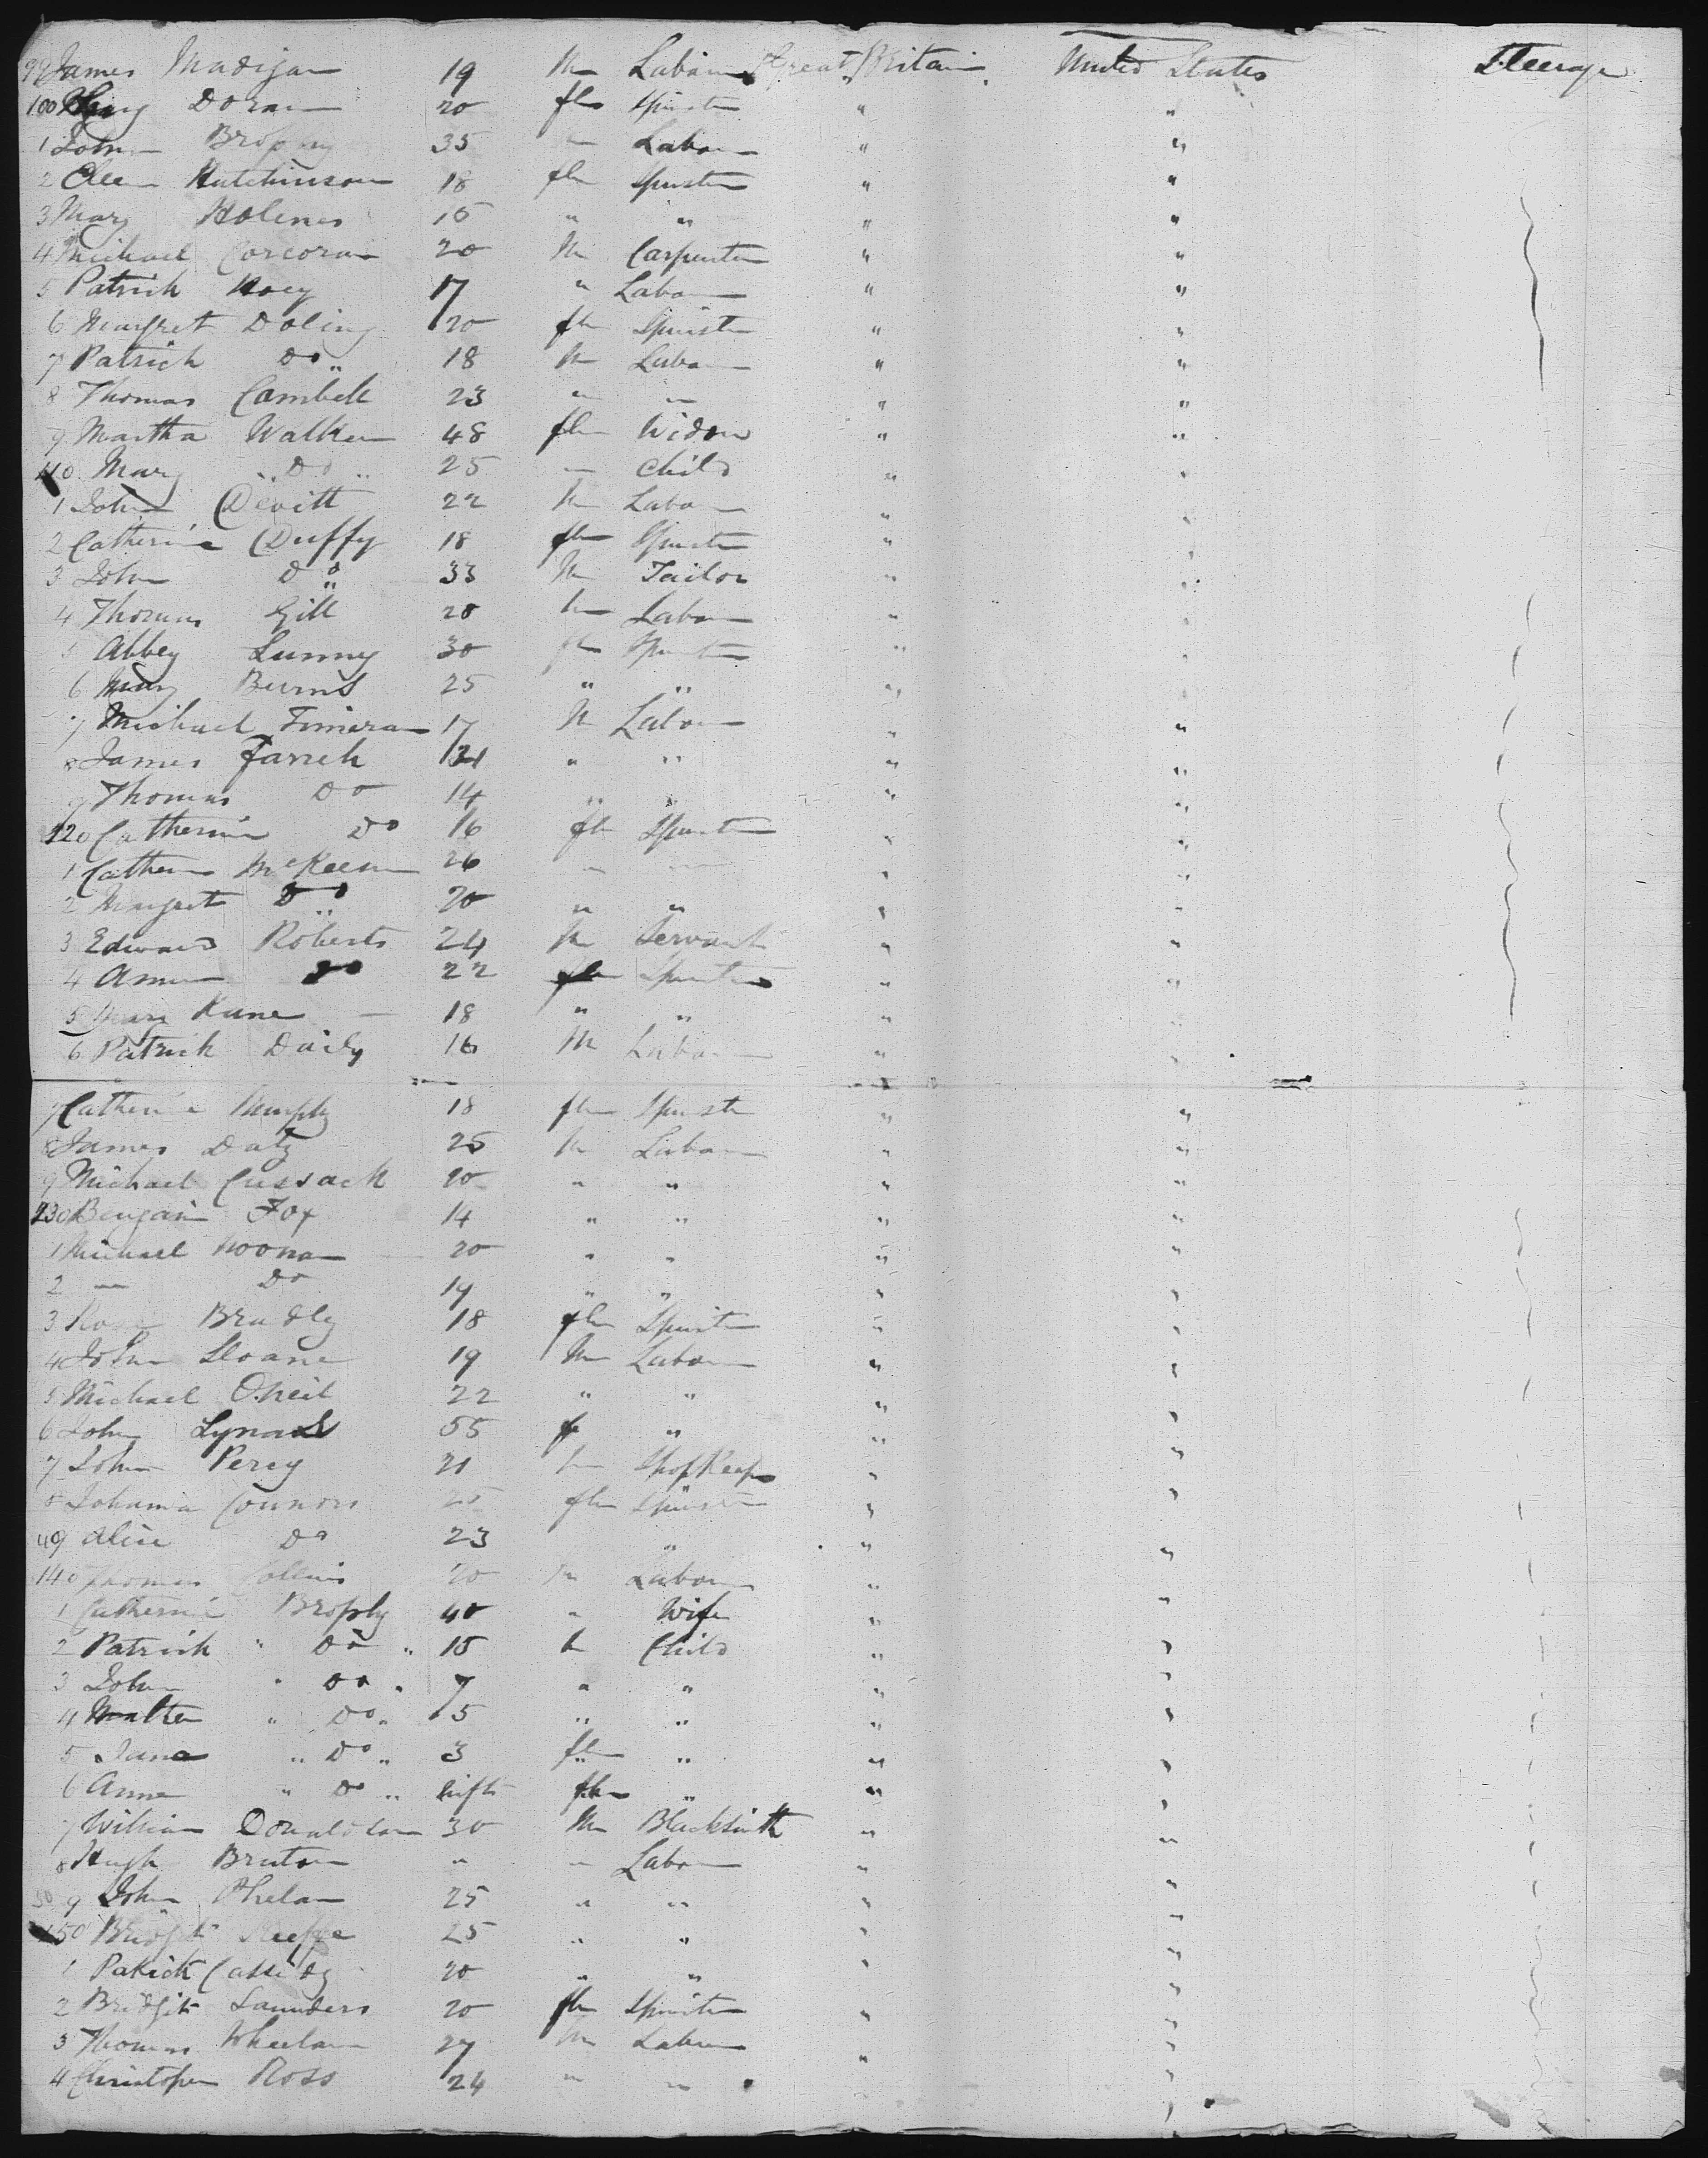 99 James Madigan 19 M Labour Great Britain United States Steerage
100 Mary Doran 20 fm Spinster " "
1 John Brophy 35 " Labour " "
2 Ellen Hutchinson 18 fm Spinster " "
3 Mary Holmes 15 " " " "
4 Michael Corcoran 20 M Carpenter " "
5 Patrick Hoey 17 " Labour " "
6 Margret Doling 20 fm Spinster " "
7 Patrick Do " 18 M Labour " "
8 Thomas Cambell 23 " " " "
9 Martha Walker 48 fm Widow " "
110 Mary " Do " 25 " Child " "
1 John Devitt 22 M Labour " "
2 Catherine Duffy 18 fm Spinster " "
3 John Do " 33 M Tailor " "
4 Thomas Gill 20 M Labour " "
5 Abbey Lunny 30 fm Spinster " "
6 Mary Burns 25 " " " "
7 Michael Fineran 17 M Labour " "
8 James Farrell 21 " " " "
9 Thomas Do 14 " " " "
120 Catherine Do 16 fm Spinster " "
1 Catherine McKeen 26 " " " "
2 Margret Do 20 " " " "
3 Edward Roberts 24 M Servant " "
4 Anne Do 22 fm Spinster " "
5 Mary Kane 18 " " " "
6 Patrick Daily 16 M Labour " "
7 Catherine Murphy 18 fm Spinster " "
8 James Daly 25 M Labour " "
9 Michael Cussack 20 " " " "
130 Benjamin Fox 14 " " " "
1 Michael Noonan 20 " " " "
2 — Do 19 " " " "
3 Rose Bradly 18 fm Spinster " "
4 John Sloane 19 M Labour " "
5 Michael O.Neil 22 " " " "
6 John 55 " " "
7 John Percy 21 M ShopKeeper " "
8 Johanna Connors 25 fm Spinster " "
49 Alice Do 23 " " "
140 Thomas Collins 20 M Labour " "
1 Catherine Brophy 40 " Wife " "
2 Patrick " Do " 15 M Child " "
3 John " Do " 7 " " " "
4 Walter " Do " 5 " " " "
5 Jane " Do " 3 fm " " "
6 Anne " Do " Inft fm " " "
7 William Donaldson 30 M Blacksmith " "
8 Hugh Bruton " " Labour " "
9 John Phelan 25 " " " "
150 Bridget Keefe 25 " " " "
1 Patrick Cassidy 20 " " " "
2 Bridgit Saunders 20 fm Spinster " "
3 Thomas Wheelan 27 M Labour " "
4 Christopher Ross 24 " " " "